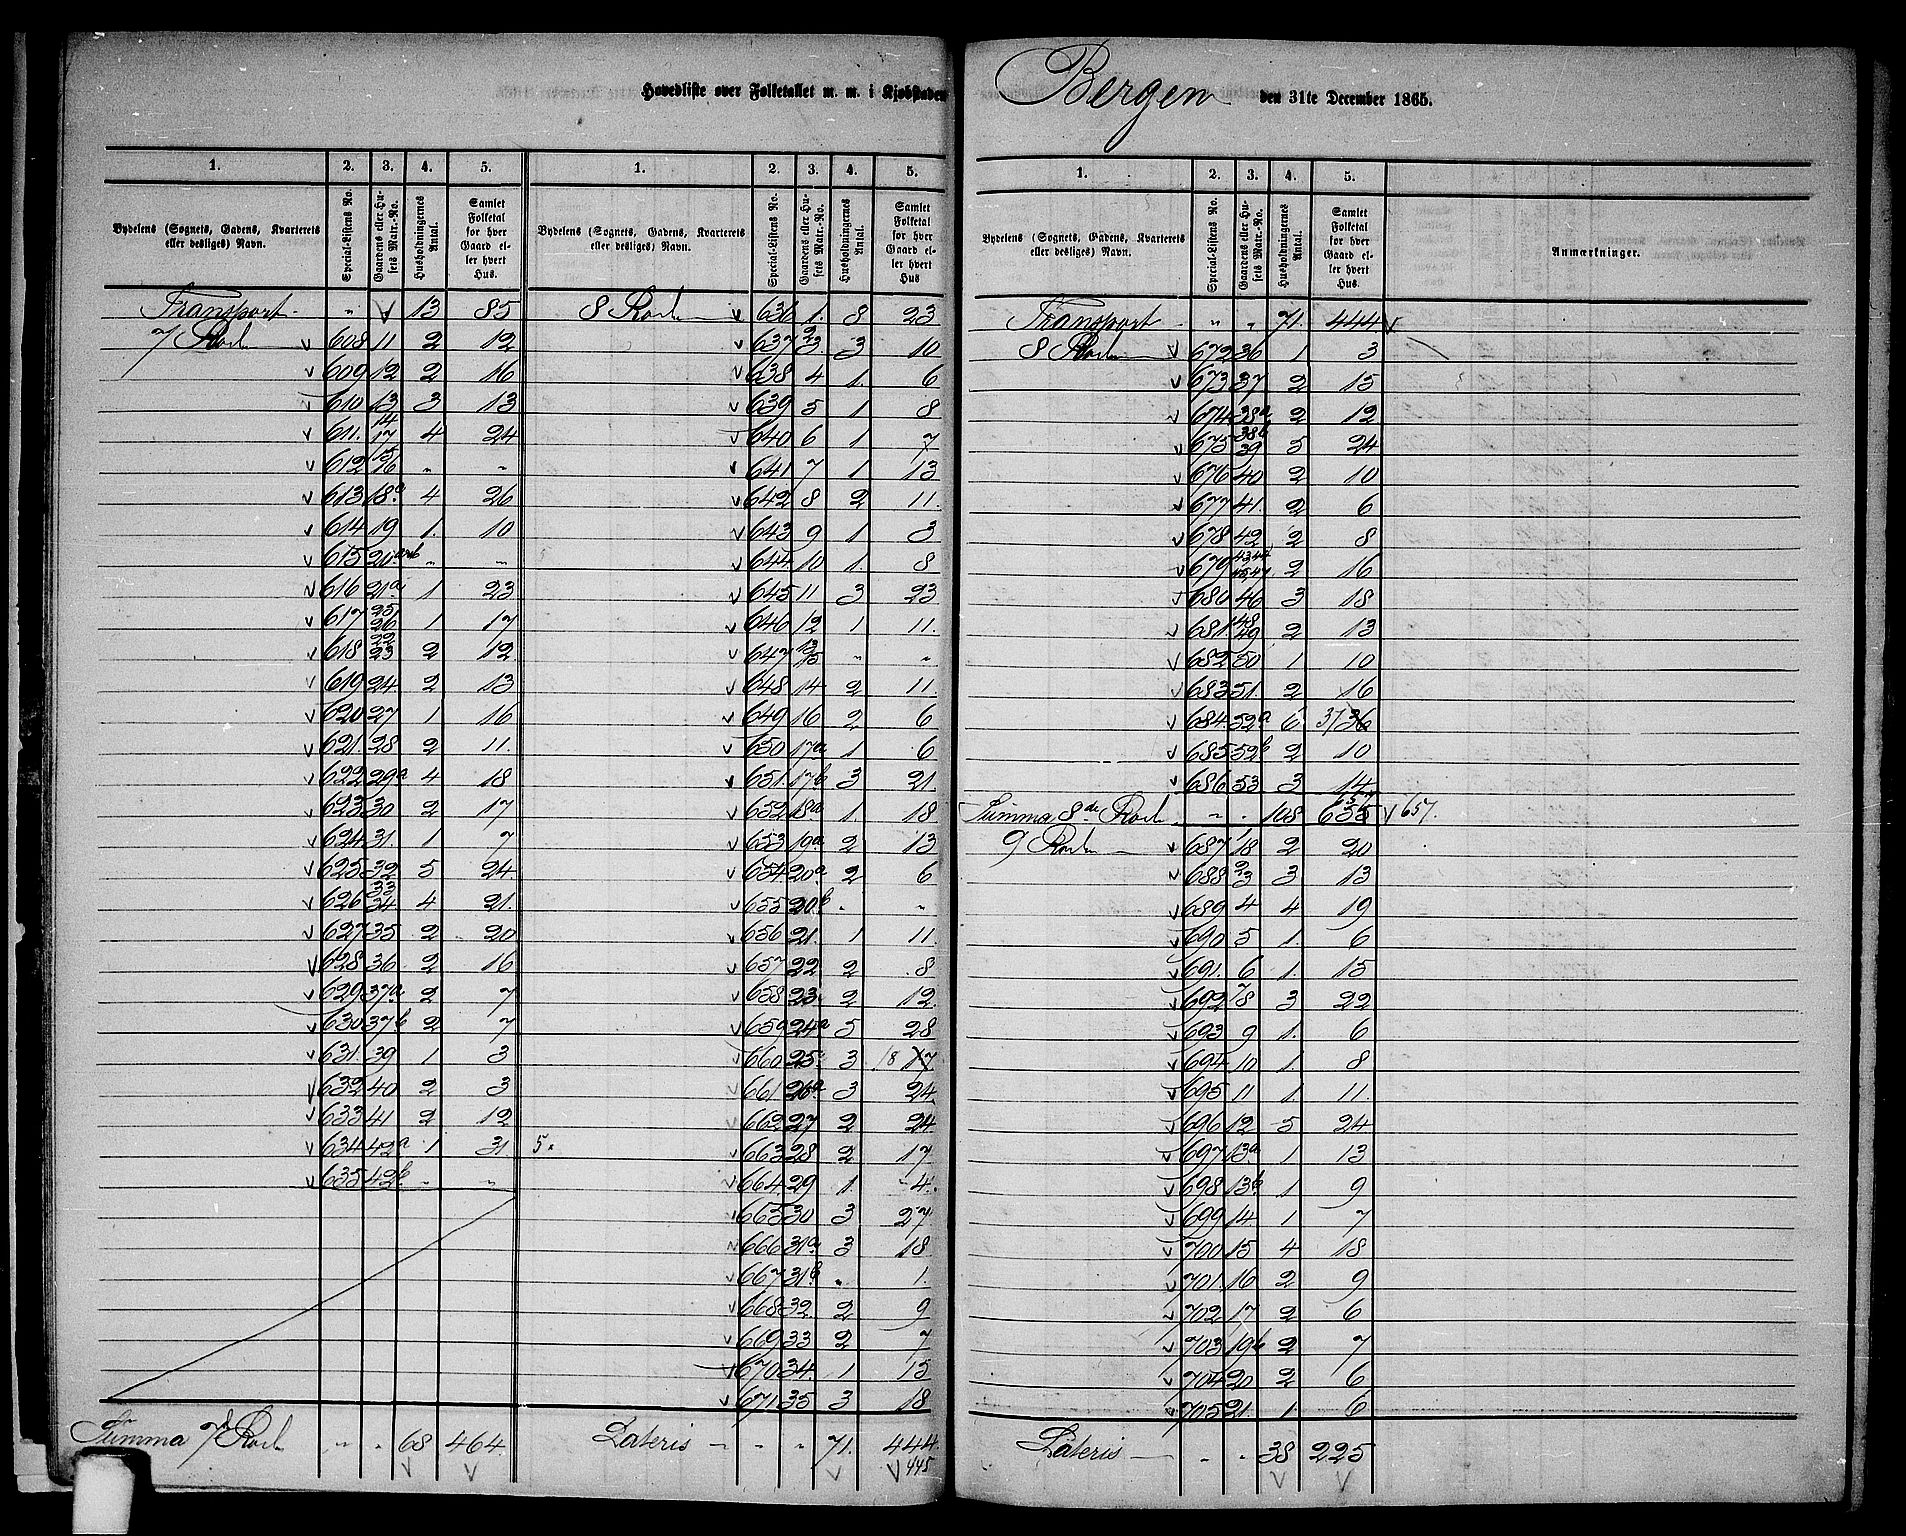 Hovedliste over Folketallet m. m. i Kjøbstaden Bergen den 31te December 1865.
1. 2. 3. 4. 5. 1. 2. 3. 4. 5.
Bydelens (Sognets, Gadens, Kvarterets eller desliges) Navn. Special-Listens No. Gaardens eller Husets Matr.-No. Husholdningernes Antal. Samlet Folketal for hver Gaard eller hvert Hus. Bydelens (Sognets, Gadens, Kvarterets eller desliges) Navn. Special-Listens No. Gaardens eller Husets Matr.-No. Husholdningernes Antal. Samlet Folketal for hver Gaard eller hvert Hus
Transport - " 13 85
7 Rode 608 11 2 12
609 12 2 16
610 13 3 13
611. 14 17 4 24
612 15 16 " "
613 18a 4 26
614 19 1. 10
615 20a&b " "
616 21a 1 23
617 25 26 1 17
618 22 23 2 12
619 24 2 13
620 27 1 16
621. 28 2 11.
622 29a 4 18
623 30 2 17
624 31. 1 7
625 32 5 24.
626 33 34 4 21.
627 35 2 20
628 36 2 16
629 37a 2 7
630 37b 2 7
631. 39 1 3
632 40 2 3
633 41 2 12
634 42a 1 31 5.
635 42b " "
Summa 7d Rode " " 68 464.
8 Rode 636 1. 8 23
637 2 3 3 10
638 4 1. 6
639 5 1 8
640 6 1 7
641 7 1 13
642 8 2 11.
643 9 1 3
644 10 1. 8
645 11 3 23
646 12 1 11.
647 13 15 " "
648 14 2 11.
649 16 2 6
650 17a 1 6
651. 17b 3 21.
652 18a 1. 18
653 19a 2 13
654 20a 2 6
655 20b " "
656 21. 1 11.
657 22 2 8
658 23 2 12.
659 24a 5 28
660 25 3 18 17
661 26a 3 24.
662 27 2 24.
663 28 2 17
664 29 1. 4.
665 30 3 27
666 31a 3 18
667 31b " 1.
668 32 2 9
669 33 2 7
670 34. 1 15
671. 35 3 18
Lateris - " " 71. 444.
445
1. 2. 3. 4. 5.
Bydelens (Sognets, Gadens, Kvarterets eller desliges) Navn. Special-Listens No. Gaardens eller Husets Matr.-No. Husholdningernes Antal. Samlet Folketal for hver Gaard eller hvert Hus. Anmærkninger.
Transport - " " 71. 444.
8 Rode 672 36 1 3
673 37 2 15
674 38a 2 12
675 38b 39 5 24
676 40 2 10
677 41. 2 6
678 42 2 8
679 43 44 45,47 2 16
680 46 3 18
681. 48 49 2 13
682 50 1 10
683 51 2 16
684. 52a 6 37 36
685 52b 2 10
686 53 3 14
Summa 8de Rode - " " 108 655 657 657.
9 Rode 687 1 18 2 20
688 2 3 3 13
689 4 4 19
690 5 1. 6
691. 6 1. 15
692 7 8 3 22
693 9 1. 6
694 10 1. 8
695 11 1. 11.
696 12 5 24
697 13a 1 13
698 13b 1 9
699 14 1 7
700 15 4 18
701. 16 2 9
702 17 2 6
703 19b 2 7
704 20 2 6
705 21. 1 6
Lateris - " " 38 225